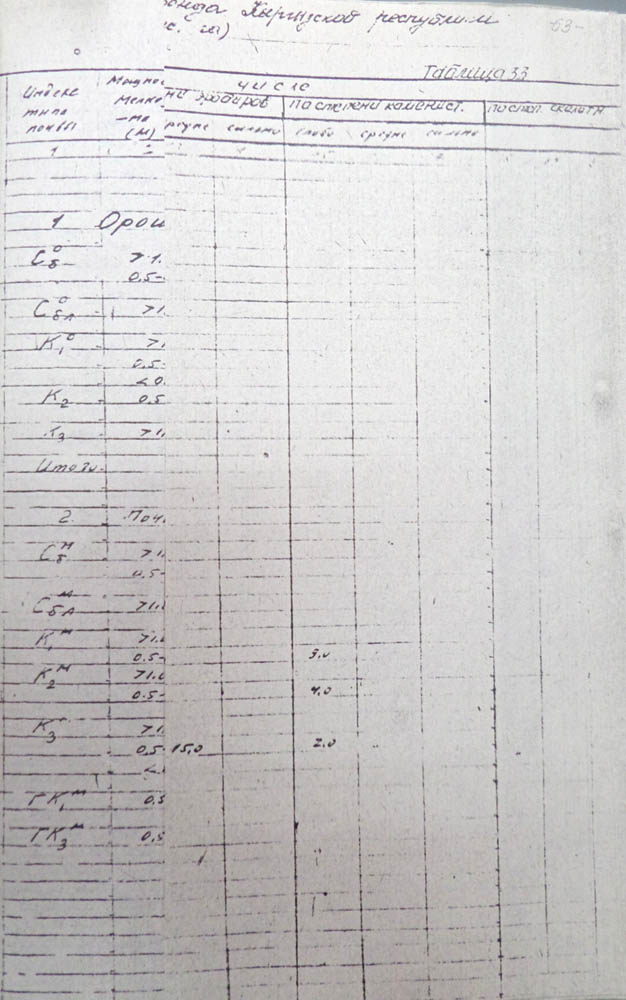 Кыргызской республики
-63-
Таблица 33
Индекс типа почвы
Мощнос мелко -ма (м)
числе
эродиров. По степени каменист. по степ.
средне сильно слабо средне сильно
1 2
1 Орош
С б о >1.
0.5-
С бл о >1
К 1 о >1.
0.5-
<0.
К 2 0.5
К 3 >1.
Итого
2. Поч.
С б м >1.
0.5-
С бл м >1.0
К 1 м >1.0
0.5- 3.0
К 2 м >1.0
0.5- 4.0
К 3 >1.
0.5 15.0 2.0
<.
ГК 1 м 0.5
ГК 3 м 0.5